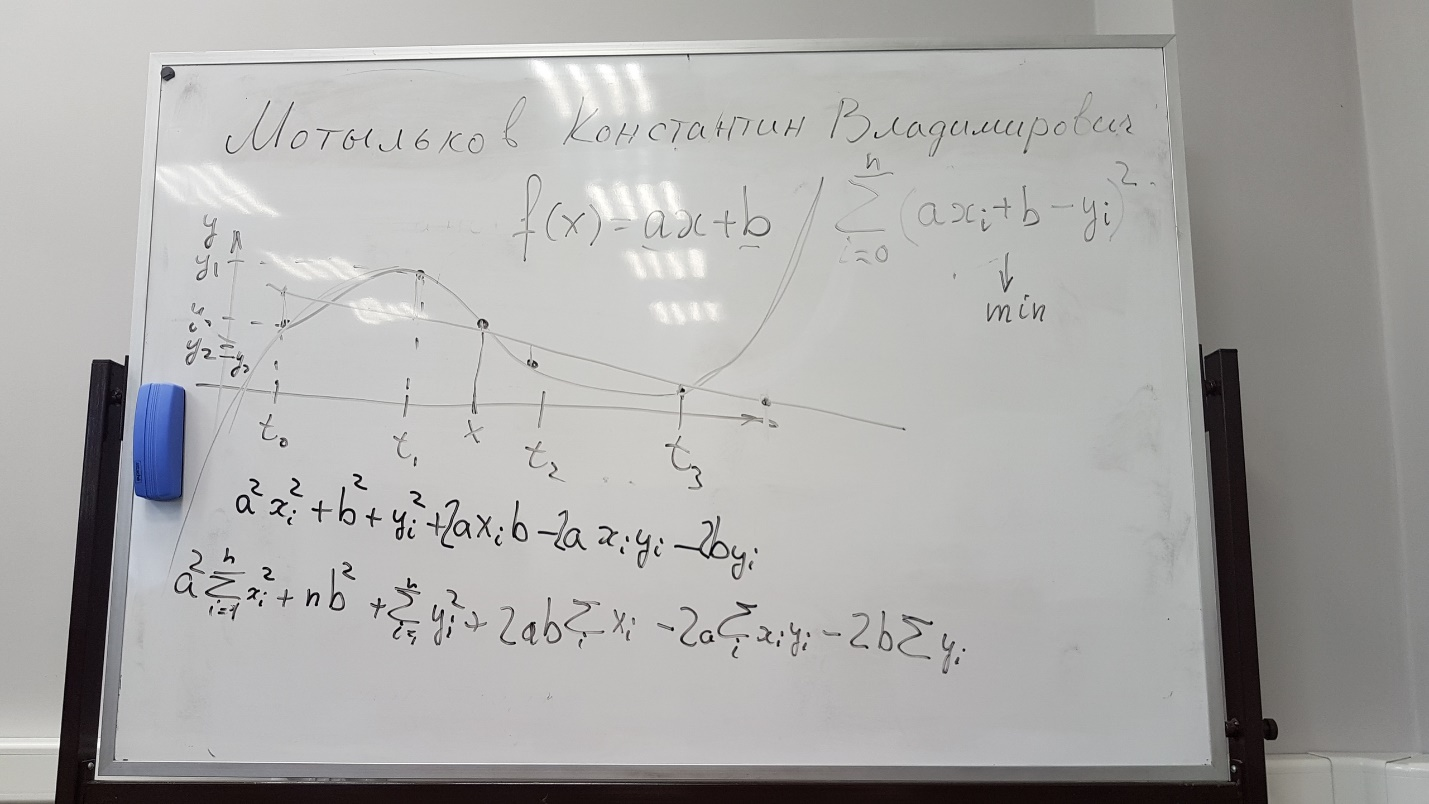 Мотыльков Константин Владимирович
f(x) = ax + b
n
∑ (axᵢ + b − yᵢ)²
i=0
↓
min
y
y₁
y₂
t₀
t₁
x
t₂
t₃
a²xᵢ² + b² + yᵢ² + 2axᵢb − 2axᵢyᵢ − 2byᵢ
a² ∑ⁿᵢ₌₁ xᵢ² + nb² + ∑ⁿᵢ₌₁ yᵢ² + 2ab ∑ᵢ xᵢ − 2a ∑ᵢ xᵢyᵢ − 2b ∑ yᵢ